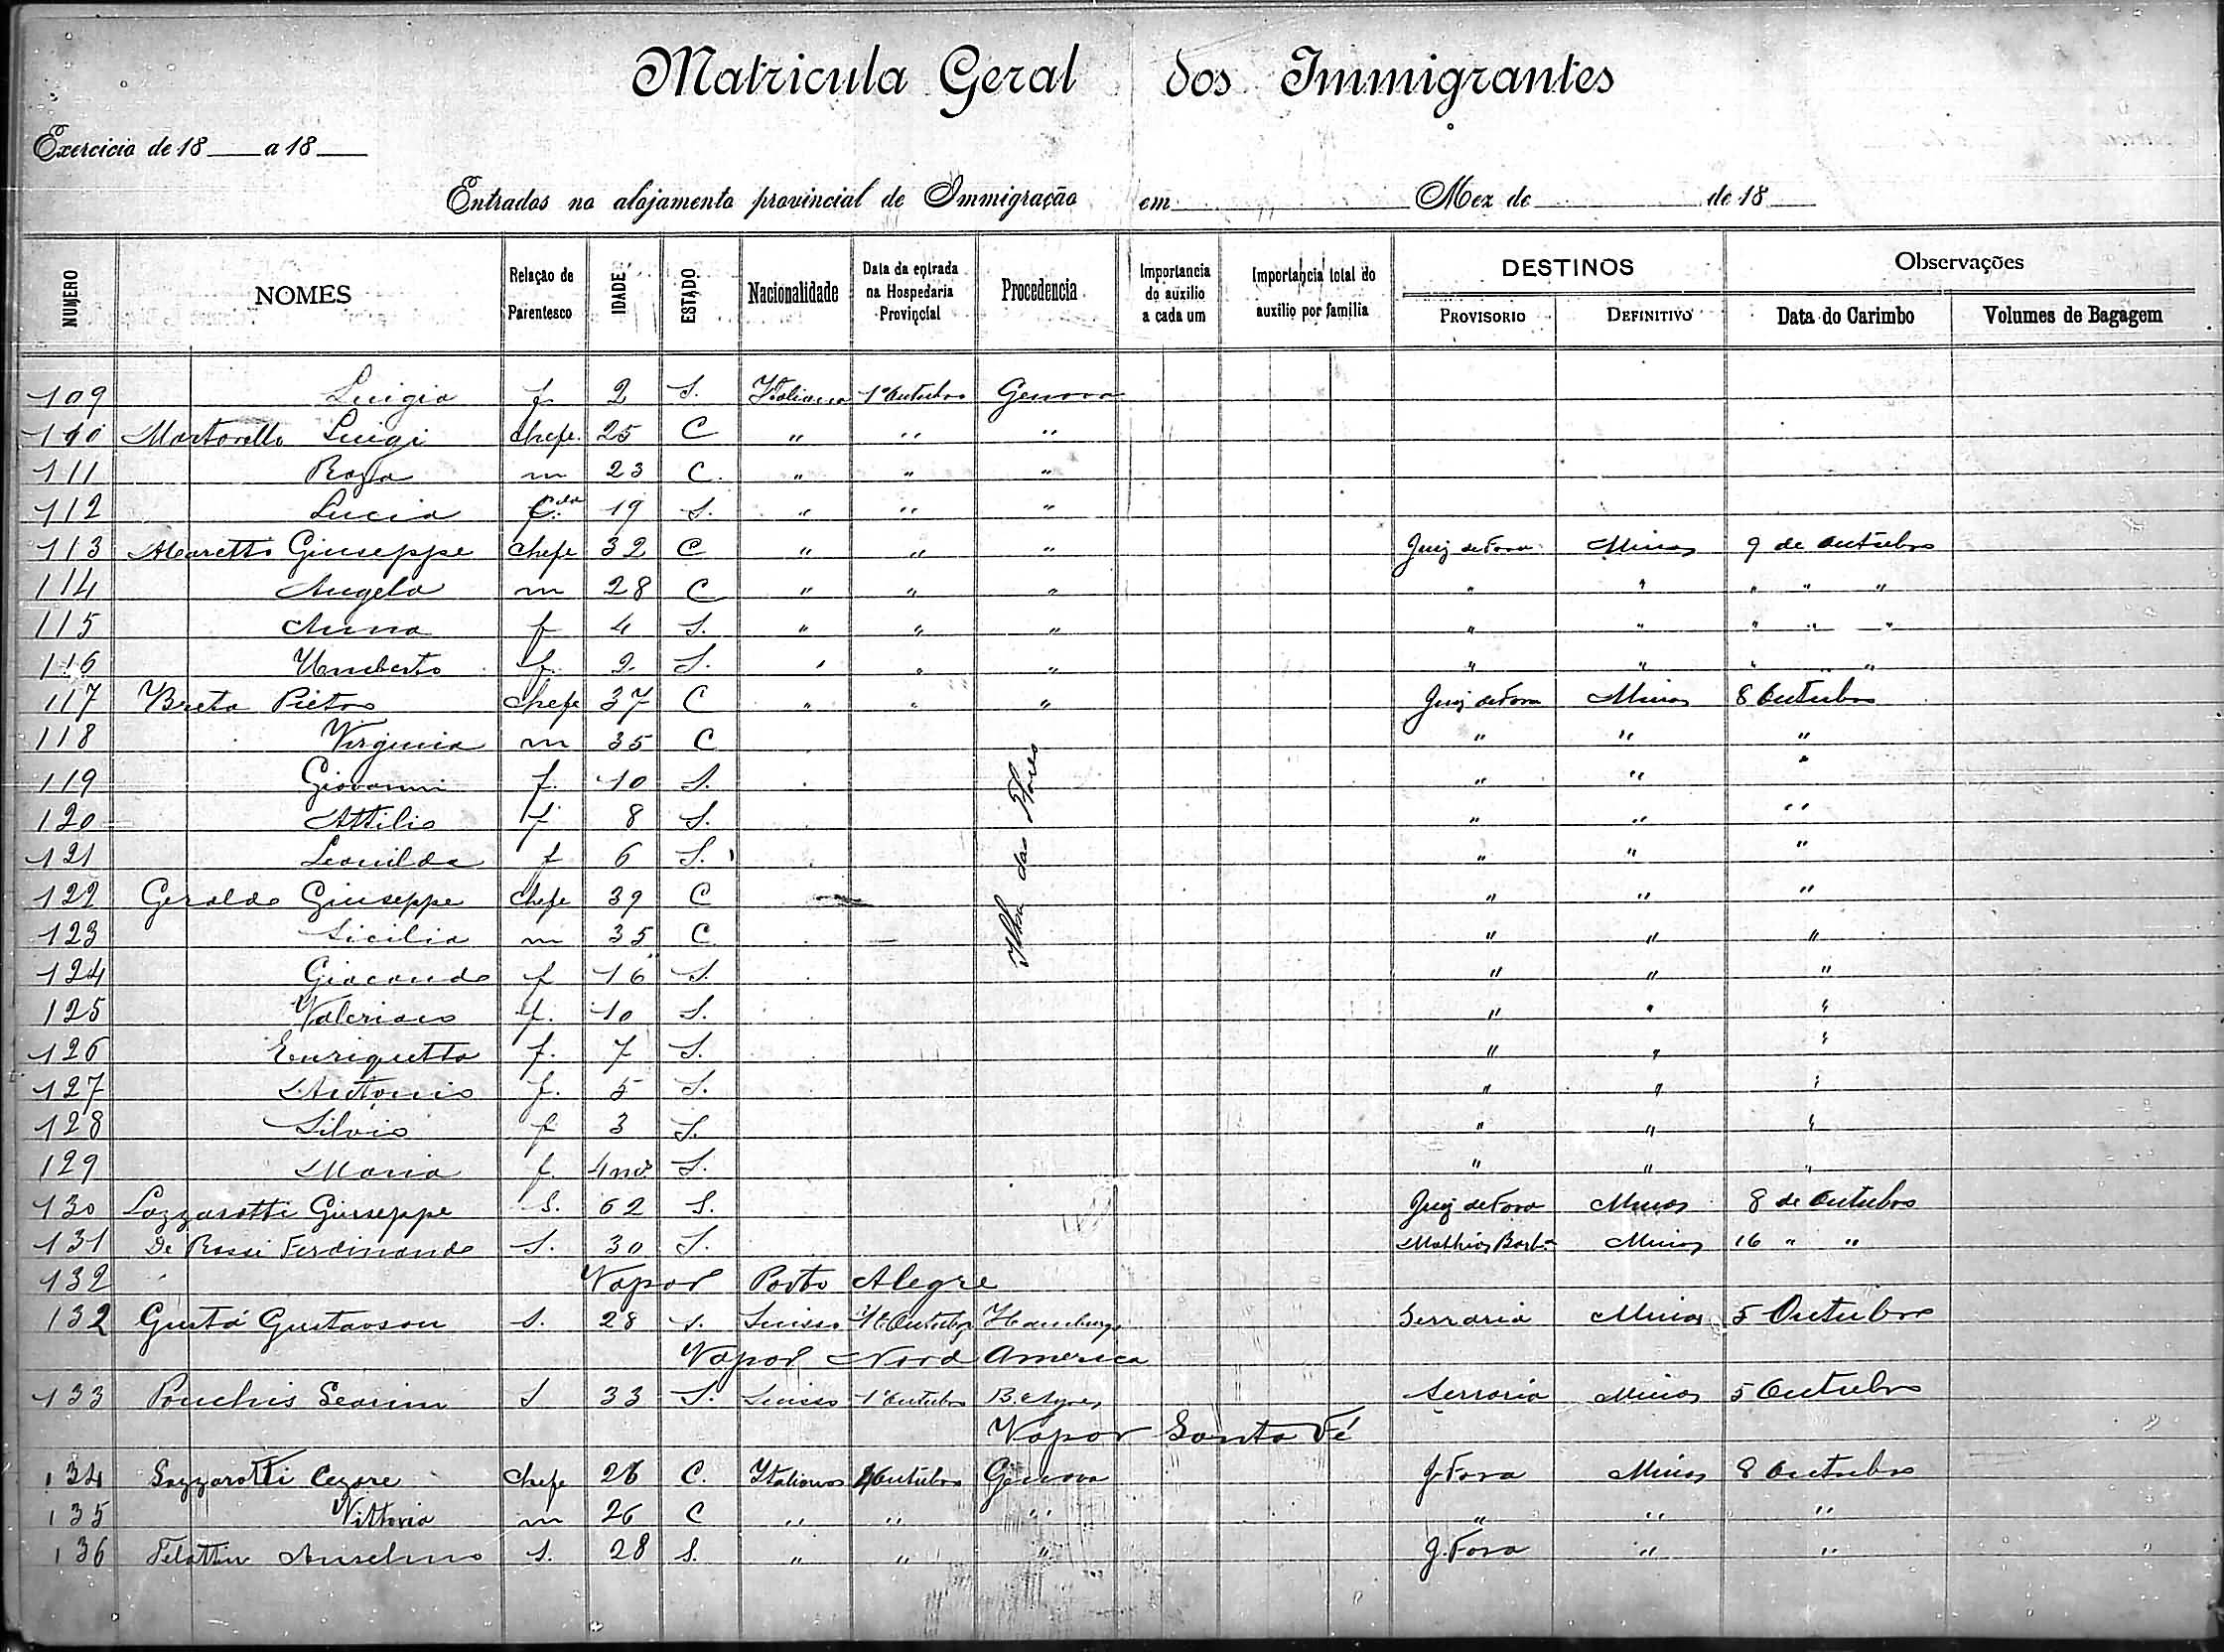 Matricula Geral dos Immigrantes
Exercicio de 18 a 18
Entrados no alojamento provincial de Immigração em Mez de de 18
NUMERO NOMES Relação de Parentesco IDADE ESTADO Nacionalidade Data da entrada na Hospedaria Provincial Procedencia Importancia do auxilio a cada um Importancia total do auxilio por familia DESTINOS PROVISORIO DEFINITIVO Observações Data do Carimbo Volumes de Bagagem
109 Luigia f. 2 S. Italiana 1º Outubro Genova
110 Martorello Luigi Chefe. 25 C " " "
111 Rosa m 23 C. " " "
112 Lucia 19 S. " " "
113 Giuseppe Chefe 32 C " " " Juiz de Fora Minas 9 de Outubro
114 Angela m 28 C " " " " " " " "
115 Anna f 4 S. " " " " " " " "
116 Umberto f. 2 S. " " " " " " " "
117 Breta Pietro Chefe 37 C " " " Juiz de Fora Minas 8 Outubro
118 Virginia m 35 C " " "
119 Giovanni f. 10 S. " " "
120 Attilio f 8 S. " " "
121 Leonilda f 6 S. " " "
122 Geraldo Giuseppe Chefe 39 C " " "
Ilha das Flores
123 Sicilia m 35 C " " "
124 Giocondo f 16 S. " " "
125 Valeriano f. 10 S. " " "
126 Enriquetta f. 7 S. " " "
127 Antonio f. 5 S. " " "
128 Silvio f 3 S. " " "
129 Maria f. 4 S. " " "
130 Lazzarotti Giuseppe S. 62 S. Juiz de Fora Minas 8 de Outubro
131 De Rossi Ferdinando S. 30 S. Mathias Barb.ª Minas 16 " "
132 Vapor Porto Alegre
132 Gustavson S. 28 S. Suisso Outubro Hamburgo Serraria Minas 5 Outubro
Vapor Nord America
133 S 33 S. Suisso 1º Outubro B. Ayres Serraria Minas 5 Outubro
Vapor Santa Fé
134 Lazzarotti Cezare Chefe 26 C. Italianos Outubro Genova J. Fora Minas 8 Outubro
135 Vittoria m 26 C " " " " " "
136 Anselmo S. 28 S. " " " J. Fora " "